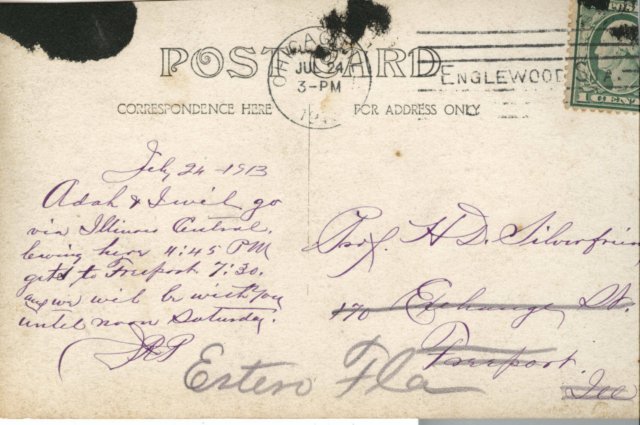 POST CARD
CHICAGO
JUL 24
3-PM
191
ENGLEWOOD
CORRESPONDENCE HERE
FOR ADDRESS ONLY
July 24 - 1913
Adah & I will go
via Illinois Central.
leving here 4:45 PM
gets to Freeport 7:30.
and we will be with you
until noon Saturday.
Prof. H D. Silverfrien
170 Exchange St.
Freeport
Ill
Estero Fla